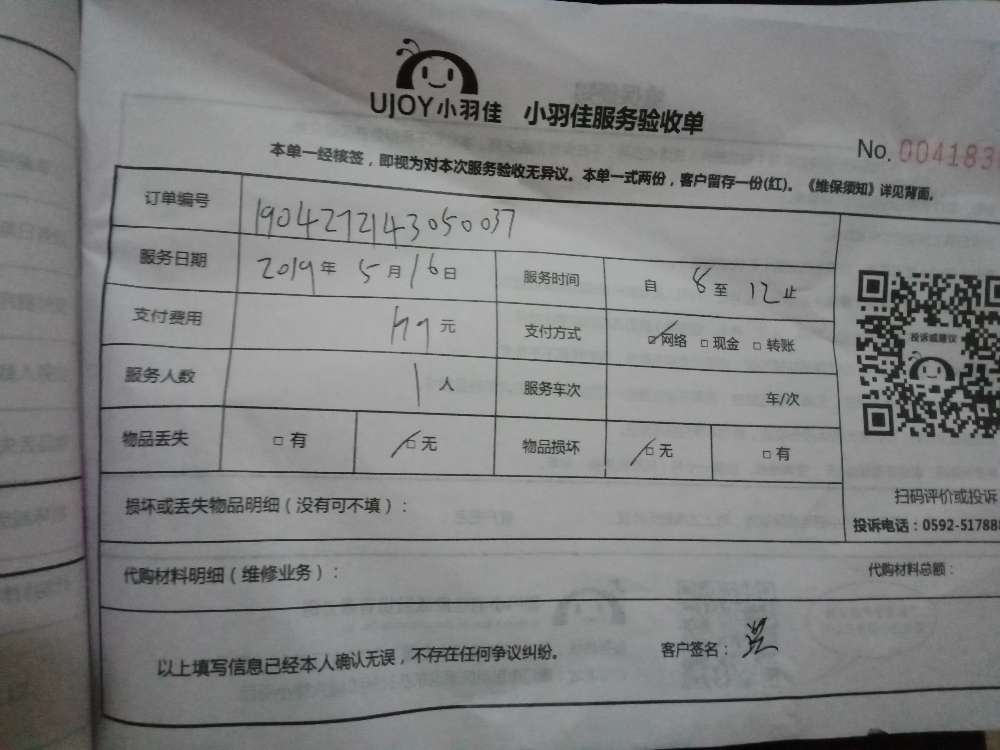 UJOY小羽佳 小羽佳服务验收单
No. 004183
本单一经核签，即视为对本次服务验收无异议。本单一式两份，客户留存一份(红)。《维保须知》详见背面。
订单编号 1904272143050037
服务日期 2019年 5月16日 服务时间 自 8 至 12 止
支付费用 元 支付方式 网络 现金 转账
投诉或建议
服务人数 1人 服务车次 车/次
物品丢失 有 无 物品损坏 无 有
扫码评价或投诉
损坏或丢失物品明细（没有可不填）：
投诉电话：0592-51788
代购材料明细（维修业务）： 代购材料总额：
以上填写信息已经本人确认无误，不存在任何争议纠纷。 客户签名：